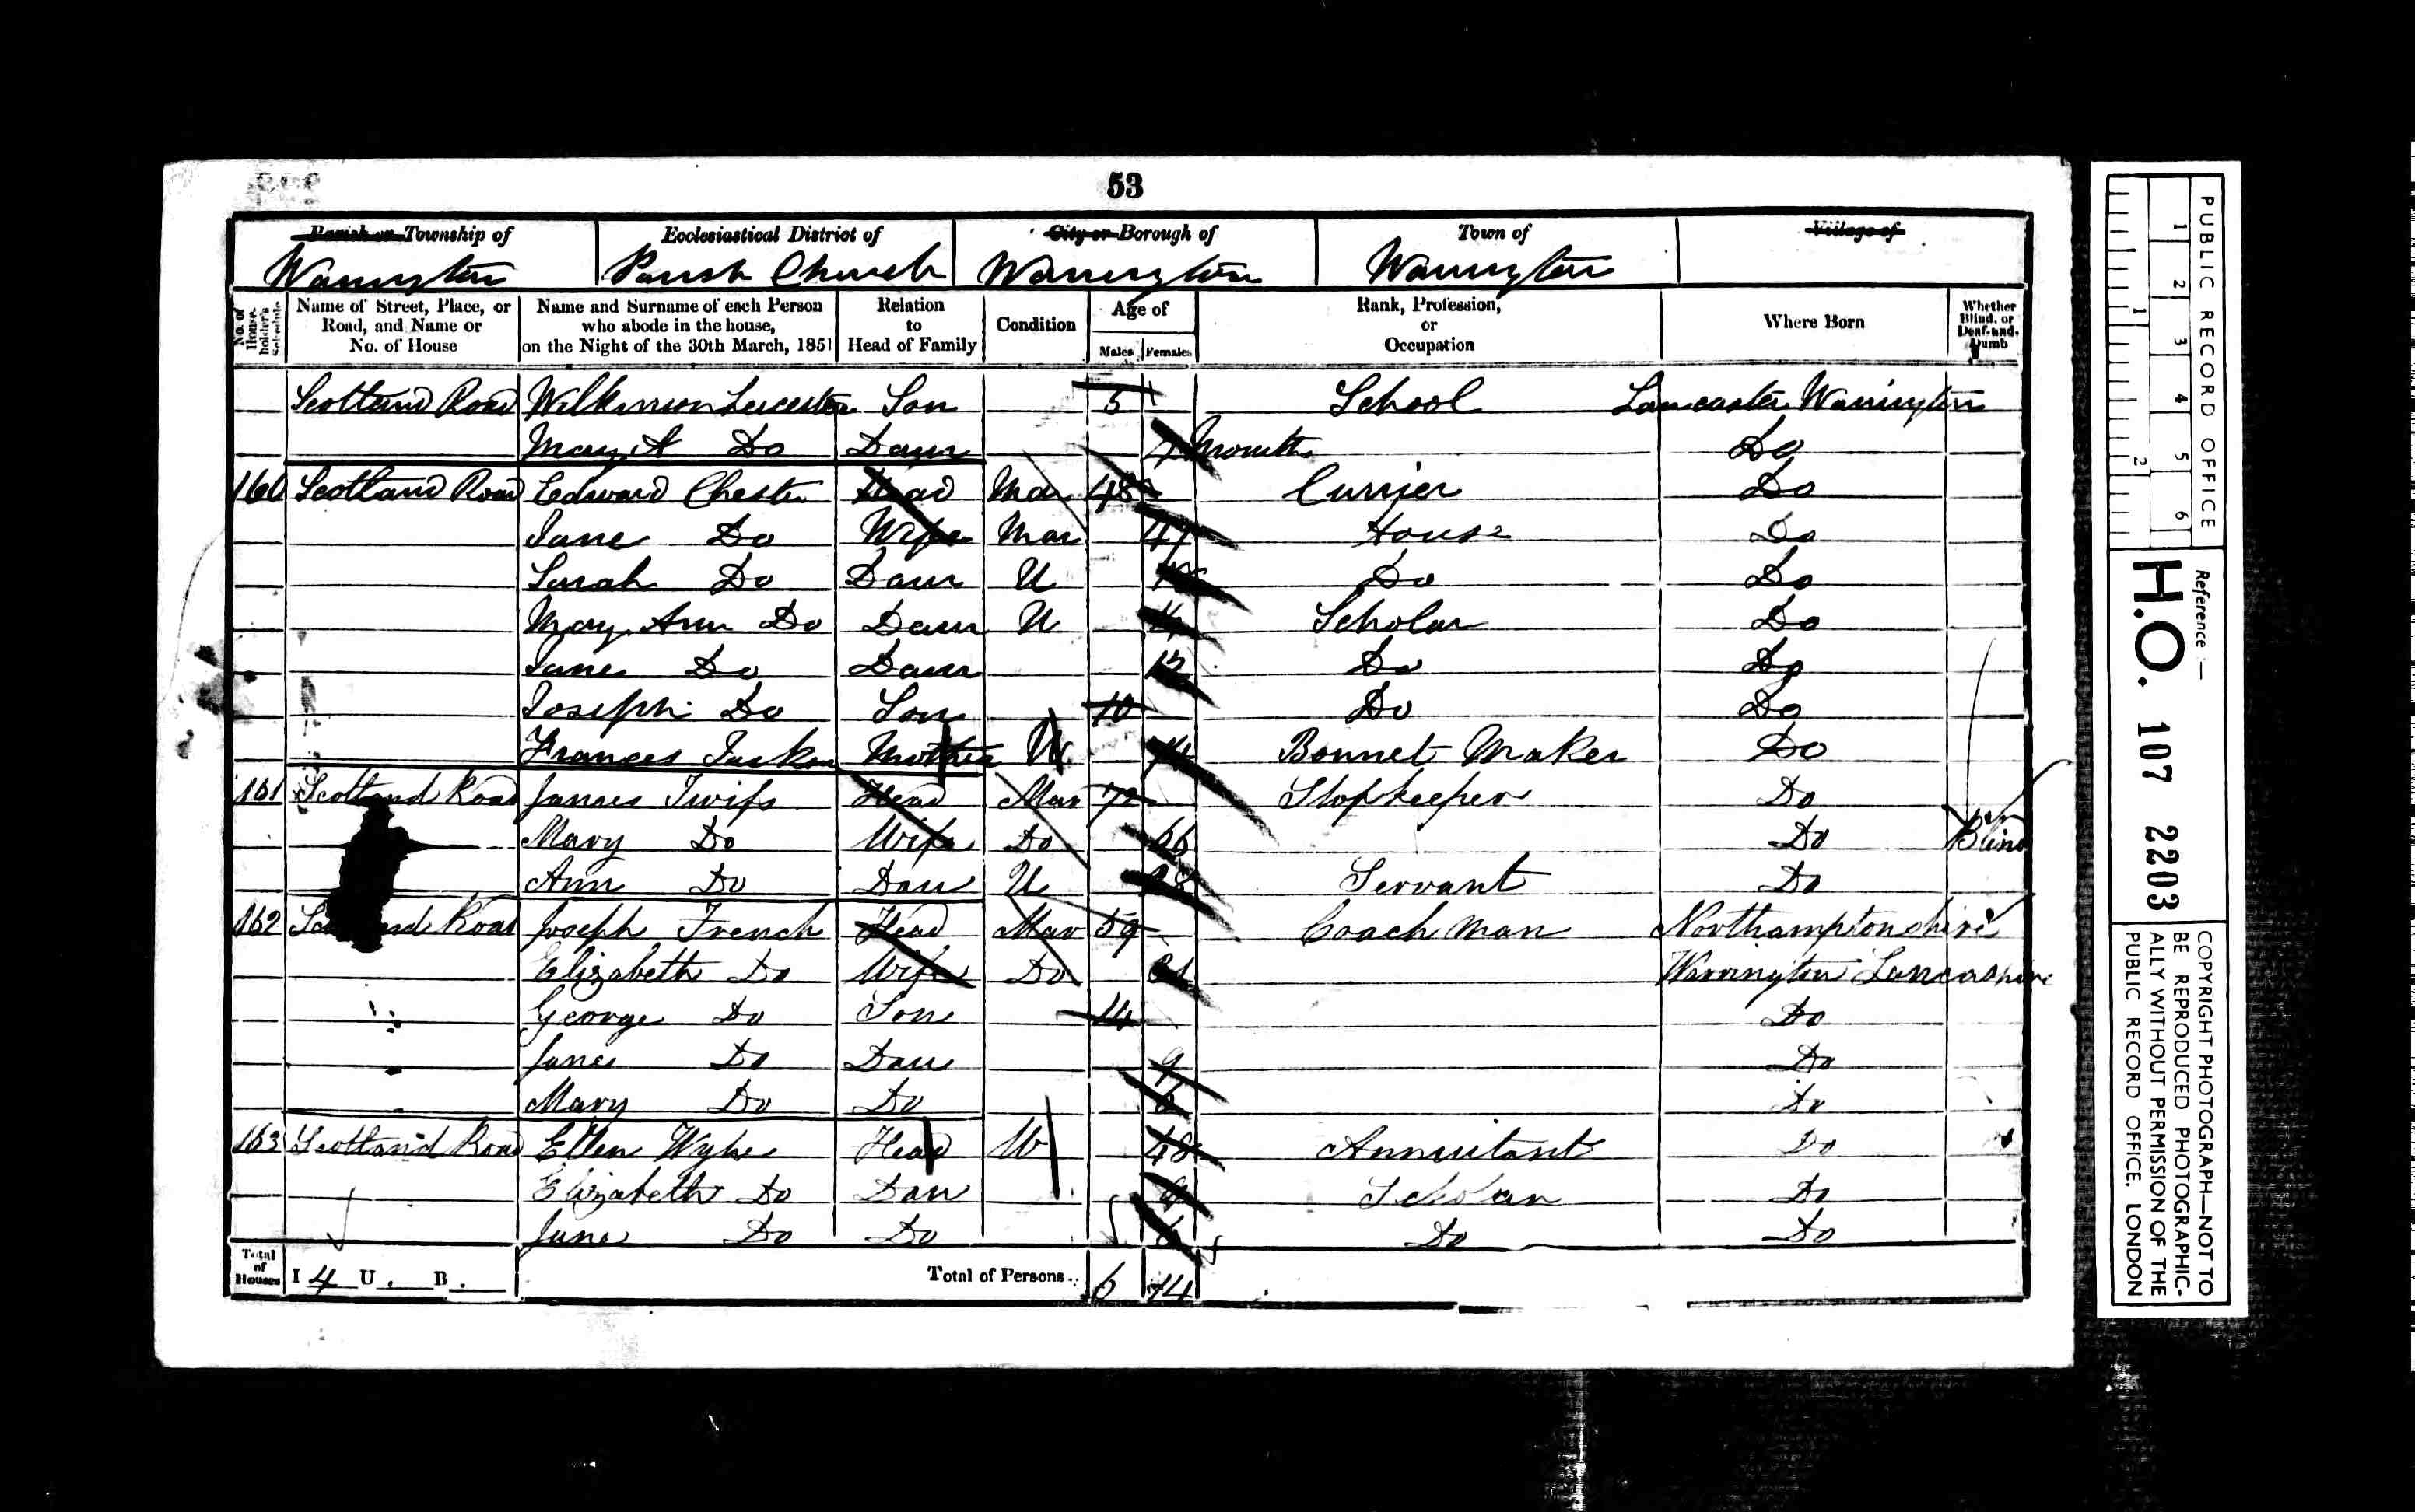 53
Parish or Township of Ecclesiastical District of City or Borough of Town of Village of
Warrington Parish Church Warrington Warrington
No. of House-holder's Schedule Name of Street, Place, or Road, and Name or No. of House Name and Surname of each Person who abode in the house, on the Night of the 30th March, 1851 Relation to Head of Family Condition Age of Males Females Rank, Profession, or Occupation Where Born Whether Blind, or Deaf-and-Dumb
Scotland Road Wilkinson Leicester Son 5 School Lancaster Warrington
Mary A Do Daur Months Do
160 Scotland Road Edward Chester Head Mar 48 Currier Do
Jane Do Wife Mar 47 House Do
Sarah Do Daur U Do Do
Mary Ann Do Daur U 14 Scholar Do
Jane Do Daur 12 Do Do
Joseph Do Son 10 Do Do
Frances Mother W Bonnet Maker Do
161 Scotland Road James Twiss Head Mar 72 Shopkeeper Do
Mary Do Wife Do 66 Do Blind
Ann Do Dau U 28 Servant Do
162 Scotland Road Joseph French Head Mar 59 Coach Man Northamptonshire
Elizabeth Do Wife Do Warrington Lancashire
George Do Son 14 Do
Jane Do Dau 9 Do
Mary Do Do 6 Do
163 Scotland Road Ellen Wyke Head W 48 Annuitant Do
Elizabeth Do Dau 9 Scholar Do
Jane Do Do Do Do
Total of Houses I 4 U . B . Total of Persons.. 6 14
PUBLIC RECORD OFFICE
1 2 3 4 5 6
1 2
Reference :—
H.O. 107 2203
COPYRIGHT PHOTOGRAPH—NOT TO
BE REPRODUCED PHOTOGRAPHIC-
ALLY WITHOUT PERMISSION OF THE
PUBLIC RECORD OFFICE, LONDON